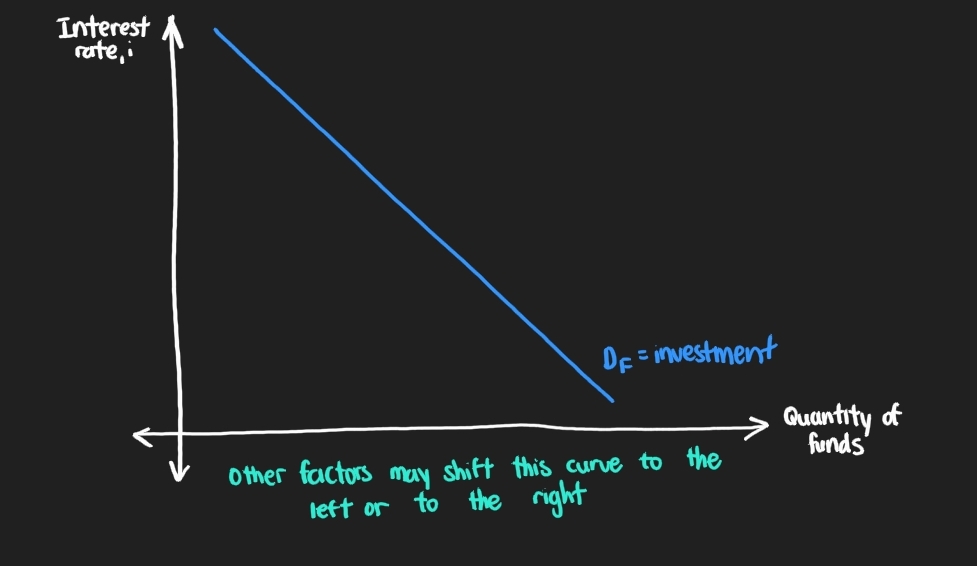 Interest
rate, i
D_F = investment
Quantity of
funds
other factors may shift this curve to the
left or to the right